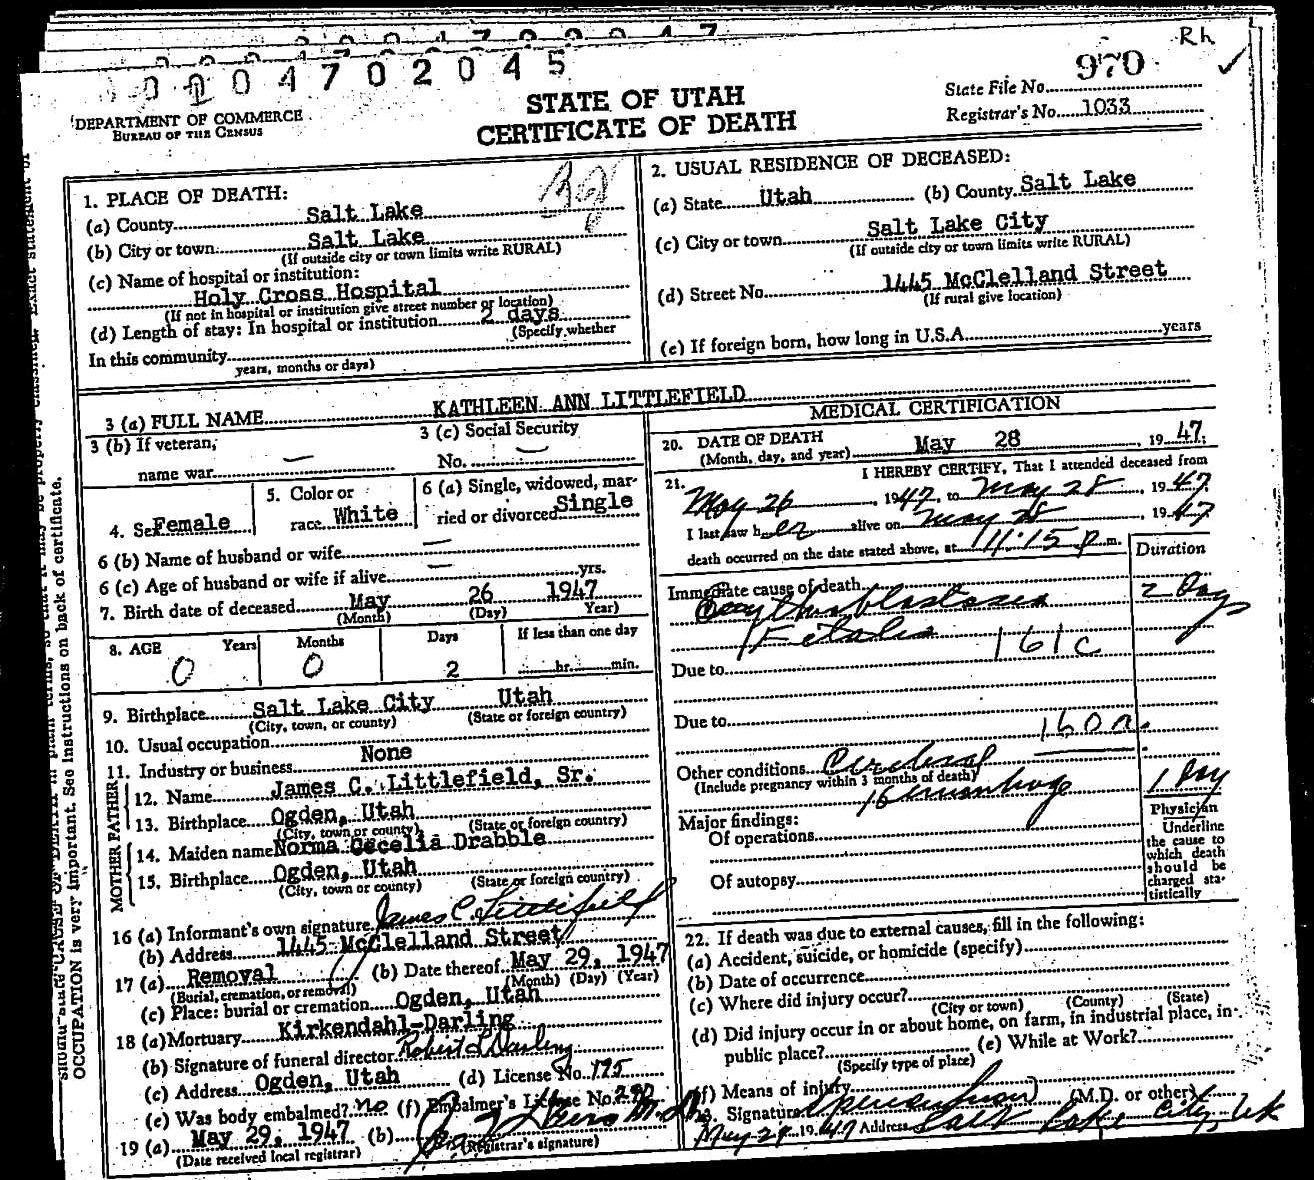 0004702045
Rh
970
DEPARTMENT OF COMMERCE
BUREAU OF THE CENSUS
STATE OF UTAH
CERTIFICATE OF DEATH
State File No.
Registrar's No. 1033
1. PLACE OF DEATH:
(a) County Salt Lake
(b) City or town Salt Lake
(If outside city or town limits write RURAL)
(c) Name of hospital or institution:
Holy Cross Hospital
(If not in hospital or institution give street number or location)
(d) Length of stay: In hospital or institution 2 days
(Specify whether
In this community
years, months or days)
2. USUAL RESIDENCE OF DECEASED:
(a) State Utah (b) County Salt Lake
(c) City or town Salt Lake City
(If outside city or town limits write RURAL)
(d) Street No. 1445 McClelland Street
(If rural give location)
(e) If foreign born, how long in U.S.A. years
3 (a) FULL NAME KATHLEEN ANN LITTLEFIELD
3 (b) If veteran, name war —
3 (c) Social Security No. —
4. Sex Female
5. Color or race White
6 (a) Single, widowed, married or divorced Single
6 (b) Name of husband or wife —
6 (c) Age of husband or wife if alive — yrs.
7. Birth date of deceased May 26 1947
(Month) (Day) Year)
8. AGE Years Months Days If less than one day
0 0 2 hr. min.
9. Birthplace Salt Lake City Utah
(City, town, or county) (State or foreign country)
10. Usual occupation
11. Industry or business None
FATHER
12. Name James C. Littlefield, Sr.
13. Birthplace Ogden, Utah
(City, town or county) (State or foreign country)
MOTHER
14. Maiden name Norma Cecelia Drabble
15. Birthplace Ogden, Utah
(City, town or county) (State or foreign country)
16 (a) Informant's own signature James C. Littlefield
(b) Address 1445 McClelland Street
17 (a) Removal (b) Date thereof May 29, 1947
(Burial, cremation, or removal) (Month) (Day) (Year)
(c) Place: burial or cremation Ogden, Utah
18 (a) Mortuary Kirkendahl-Darling
(b) Signature of funeral director Robert L Darling
(c) Address Ogden, Utah (d) License No. 195
(e) Was body embalmed? no (f) Embalmer's License No.
19 (a) May 29, 1947 (b)
(Date received local registrar) (Registrar's signature)
MEDICAL CERTIFICATION
20. DATE OF DEATH
(Month, day, and year) May 28, 1947;
21. I HEREBY CERTIFY, That I attended deceased from
May 26, 1947, to May 28, 1947
I last saw her alive on May 28, 1947
death occurred on the date stated above, at 11:15 P m.
Duration
Immediate cause of death
Erythroblastosis 2 Days
Fetalis 161c
Due to
Due to 160a.
Other conditions Cerebral
(Include pregnancy within 3 months of death)
Hemorrhage 1 Day
Major findings:
Of operations
Of autopsy
Physician
Underline the cause to which death should be charged statistically
22. If death was due to external causes, fill in the following:
(a) Accident, suicide, or homicide (specify)
(b) Date of occurrence
(c) Where did injury occur?
(City or town) (County) (State)
(d) Did injury occur in or about home, on farm, in industrial place, in public place? (e) While at Work?
(Specify type of place)
(f) Means of injury
23. Signature (M.D. or other)
May 29 1947 Address Salt Lake City, Ut
OCCUPATION is very important. See instructions on back of certificate.